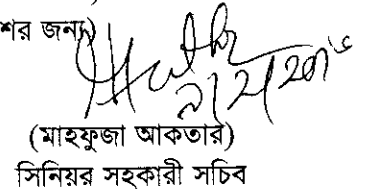 শর জন্য)
(মাহফুজা আকতার)
সিনিয়র সহকারী সচিব